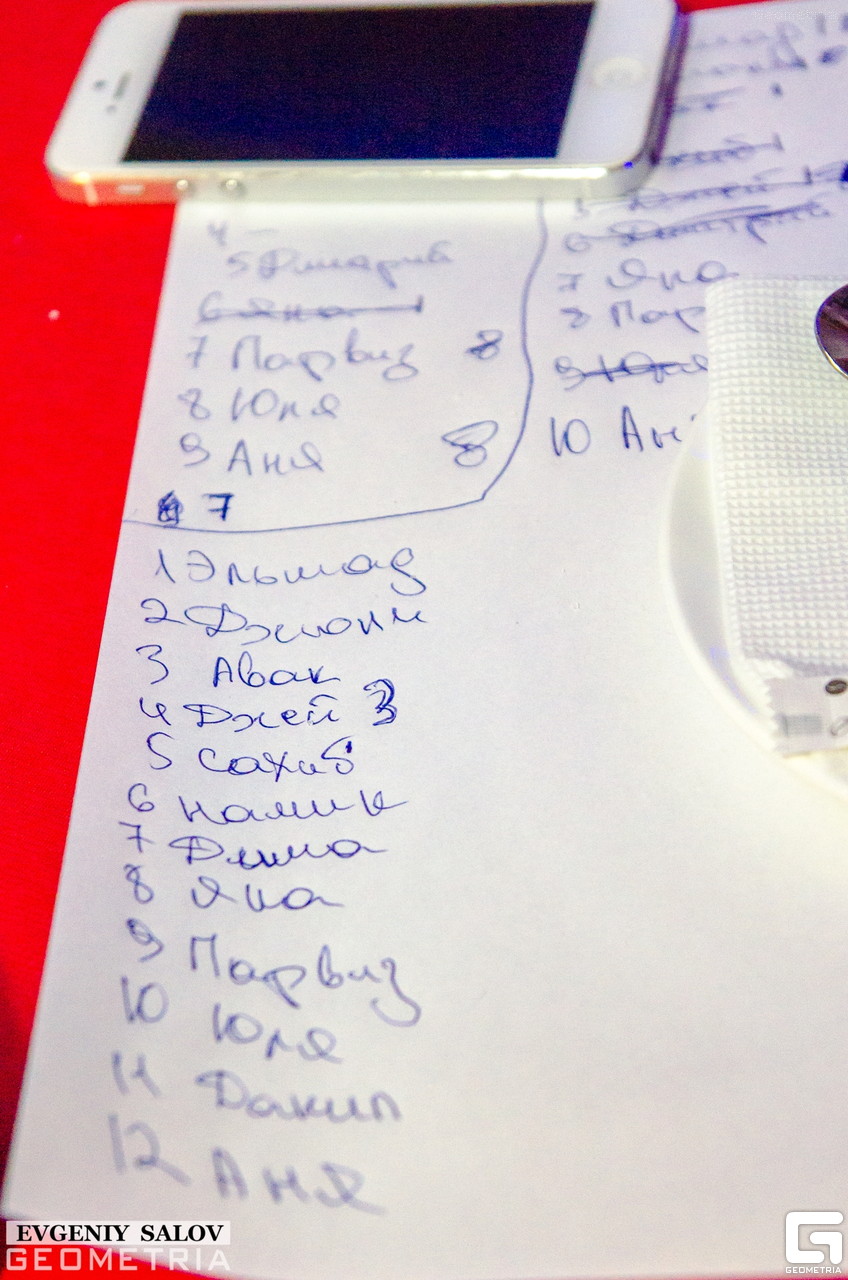 4 —
5 Дмитрий
6 Яна
7 Парвиз 8
8 Юля
9 Аня 8
7
1 Эльшад
2 Джони
3 Авак
4 Джей 3
5 Сахиб
6 Намик
7 Дима
8 Яна
9 Парвиз
10 Юля
11 Дакип
12 Аня
5 Джей 1
6 Дмитрий
7 Яна
8 Пар
9 Юля
10 Ан
EVGENIY SALOV
GEOMETRIA
GEOMETRIA